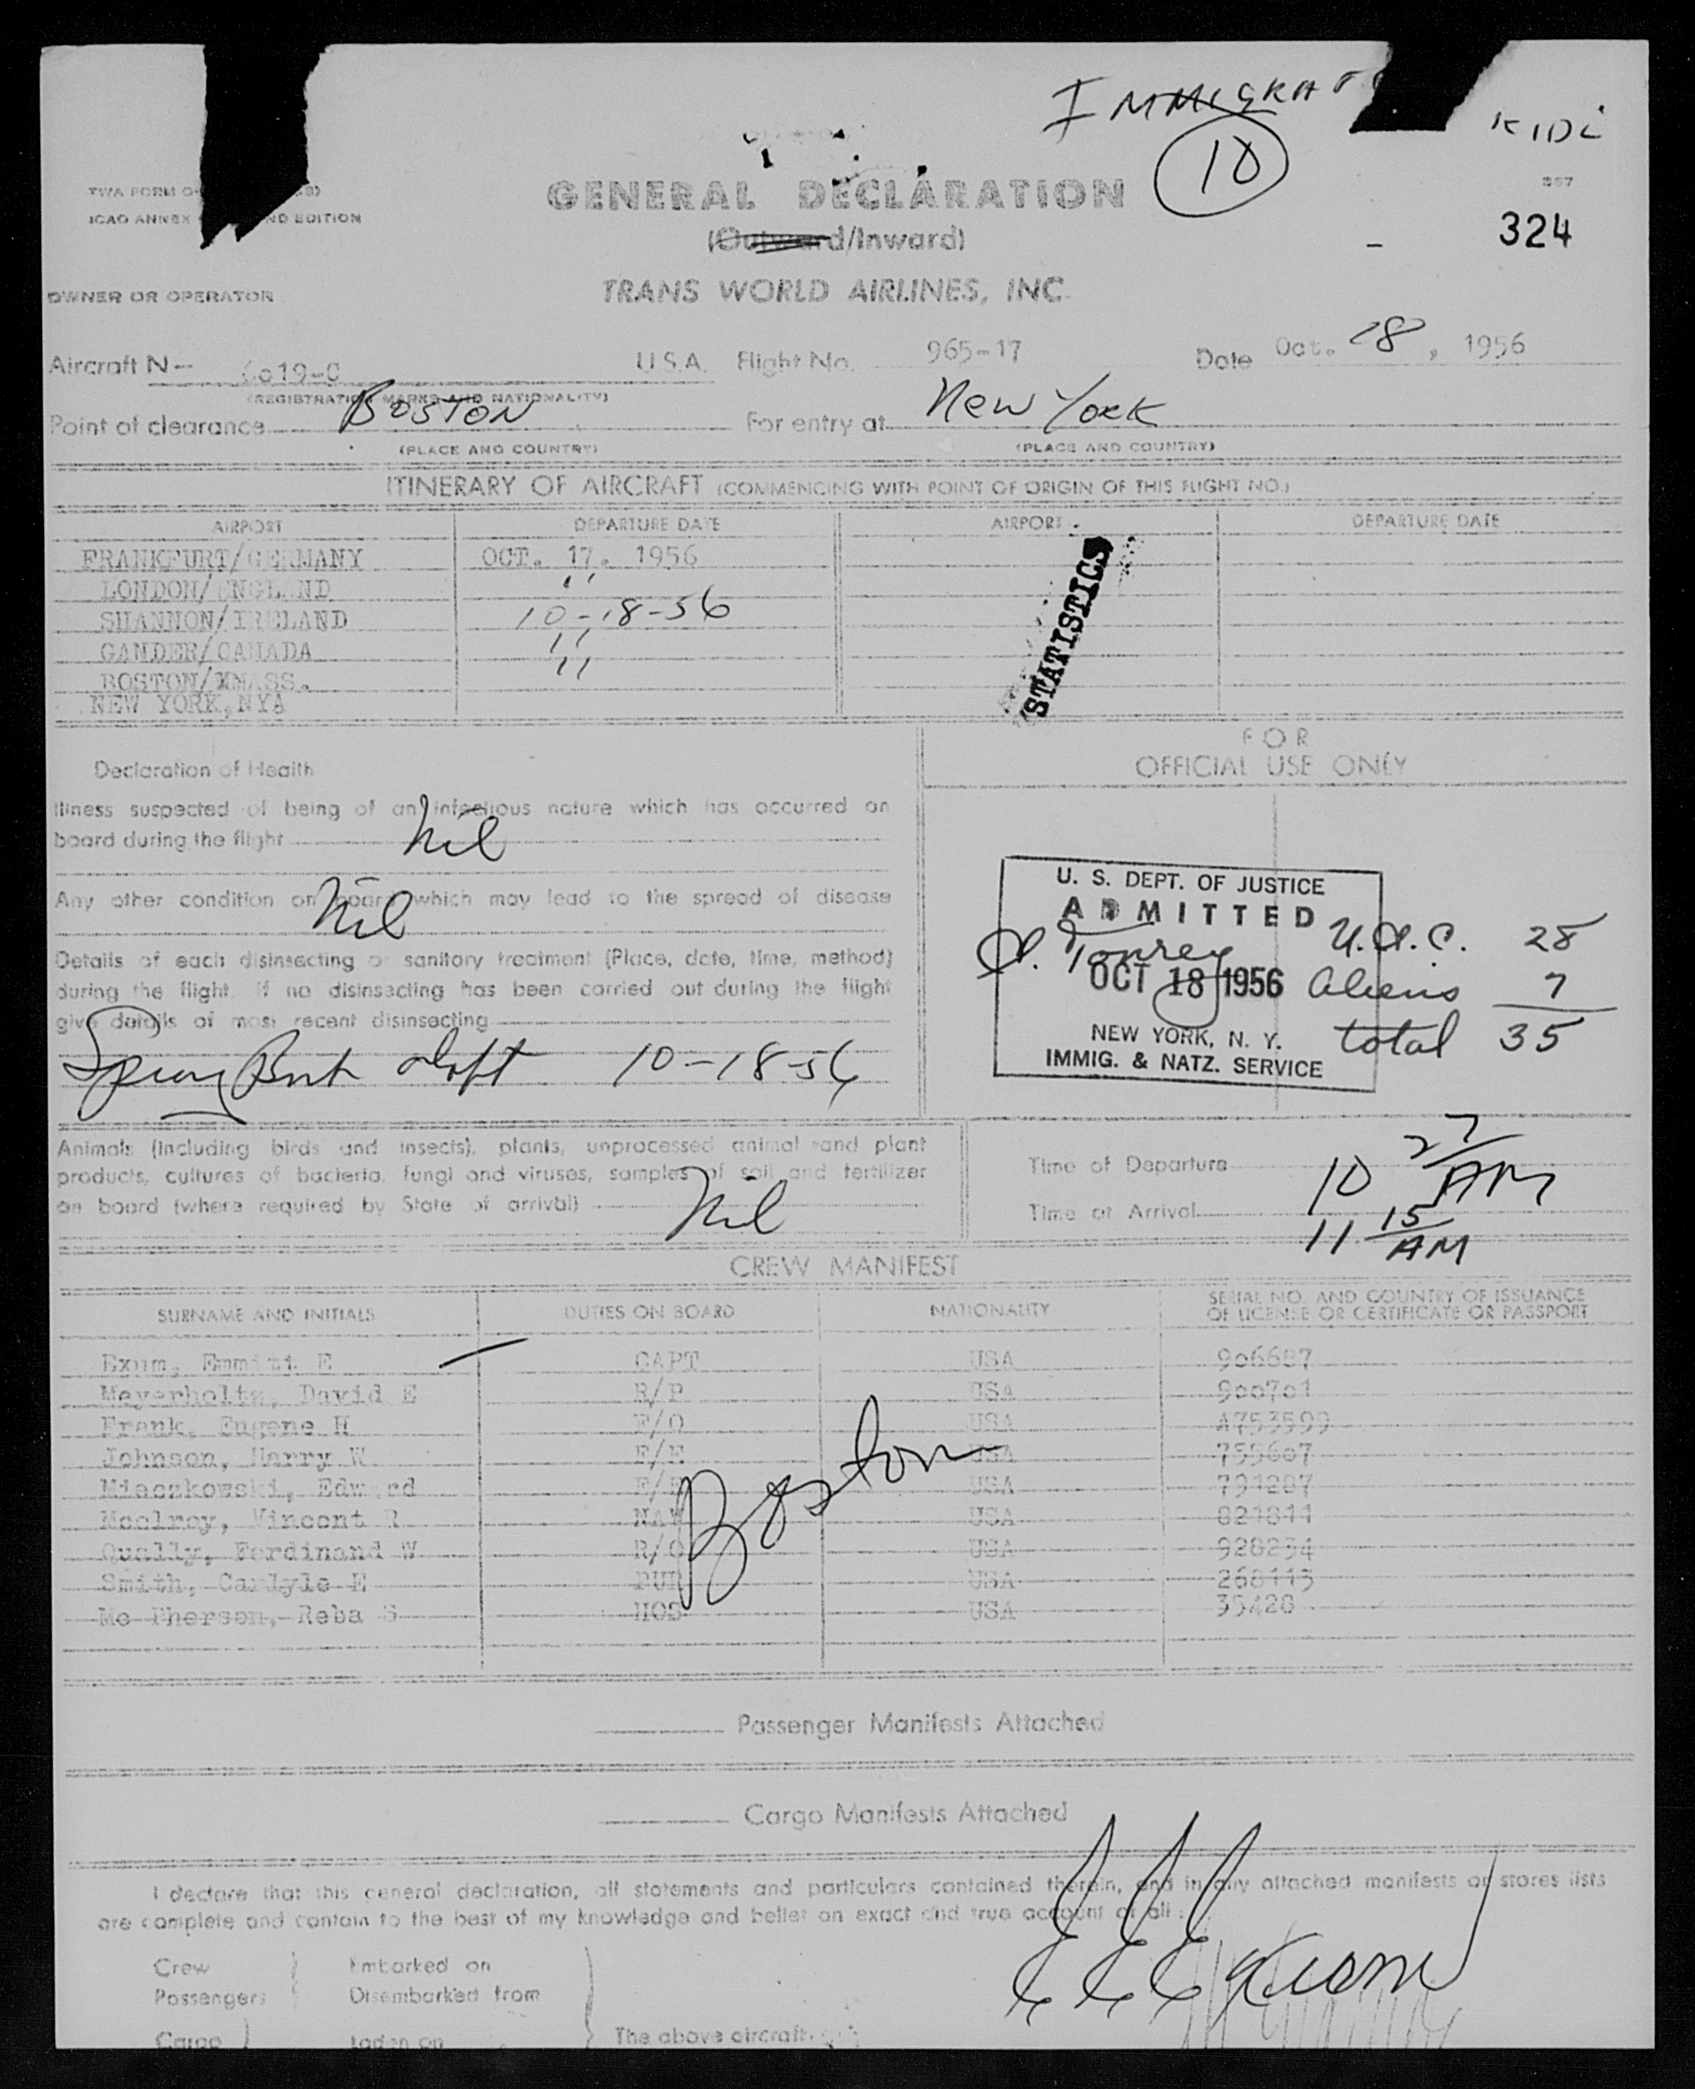 IMMIGRAT
KIDL
10
TWA FORM
ICAO ANNEX ND EDITION
GENERAL DECLARATION
(Outward/Inward)
324
OWNER OR OPERATOR
TRANS WORLD AIRLINES, INC.
Aircraft N- 6019-C U.S.A. Flight No. 965-17 Date Oct. 28, 1956
(REGISTRATION MARKS AND NATIONALITY)
Point of clearance BOSTON For entry at New York
(PLACE AND COUNTRY) (PLACE AND COUNTRY)
ITINERARY OF AIRCRAFT (COMMENCING WITH POINT OF ORIGIN OF THIS FLIGHT NO.)
AIRPORT DEPARTURE DATE AIRPORT DEPARTURE DATE
FRANKFURT/GERMANY OCT. 17. 1956
LONDON/ENGLAND "
SHANNON/IRELAND 10-18-56
GANDER/CANADA "
BOSTON/MASS. "
NEW YORK, NYA
STATISTICS
FOR
OFFICIAL USE ONLY
Declaration of Health
Illness suspected of being of an infectious nature which has occurred on
board during the flight Nil
Any other condition on board which may lead to the spread of disease
Nil
Details of each disinsecting or sanitary treatment (Place, date, time, method)
during the flight. If no disinsecting has been carried out during the flight
give details of most recent disinsecting
Spray 10-18-56
U. S. DEPT. OF JUSTICE
ADMITTED
OCT 18 1956
NEW YORK, N. Y.
IMMIG. & NATZ. SERVICE
U.S.C. 28
Aliens 7
total 35
Animals (including birds and insects), plants, unprocessed animal and plant
products, cultures of bacteria, fungi and viruses, samples of soil and fertilizer
on board (where required by State of arrival) Nil
Time of Departure 10 27 AM
Time of Arrival 11 15 AM
CREW MANIFEST
SURNAME AND INITIALS DUTIES ON BOARD NATIONALITY SERIAL NO. AND COUNTRY OF ISSUANCE
OF LICENSE OR CERTIFICATE OR PASSPORT
Exum, Emmitt E CAPT USA 906687
Meyerholtz, David E R/P USA 900701
Frank, Eugene H F/O USA 4753599
Johnson, Harry W F/E USA 755607
Mieczkowski, Edward F/E USA 791207
Mcelroy, Vincent R NAV USA 821811
Qually, Ferdinand W R/O USA 928234
Smith, Carlyle E PUR USA 268113
Mc Pherson, Reba S HOS USA 35428
Boston
Passenger Manifests Attached
Cargo Manifests Attached
I declare that this general declaration, all statements and particulars contained therein, and in any attached manifests or stores lists
are complete and contain to the best of my knowledge and belief an exact and true account of all
Crew Embarked on
Passengers Disembarked from
Cargo Laden on The above aircraft